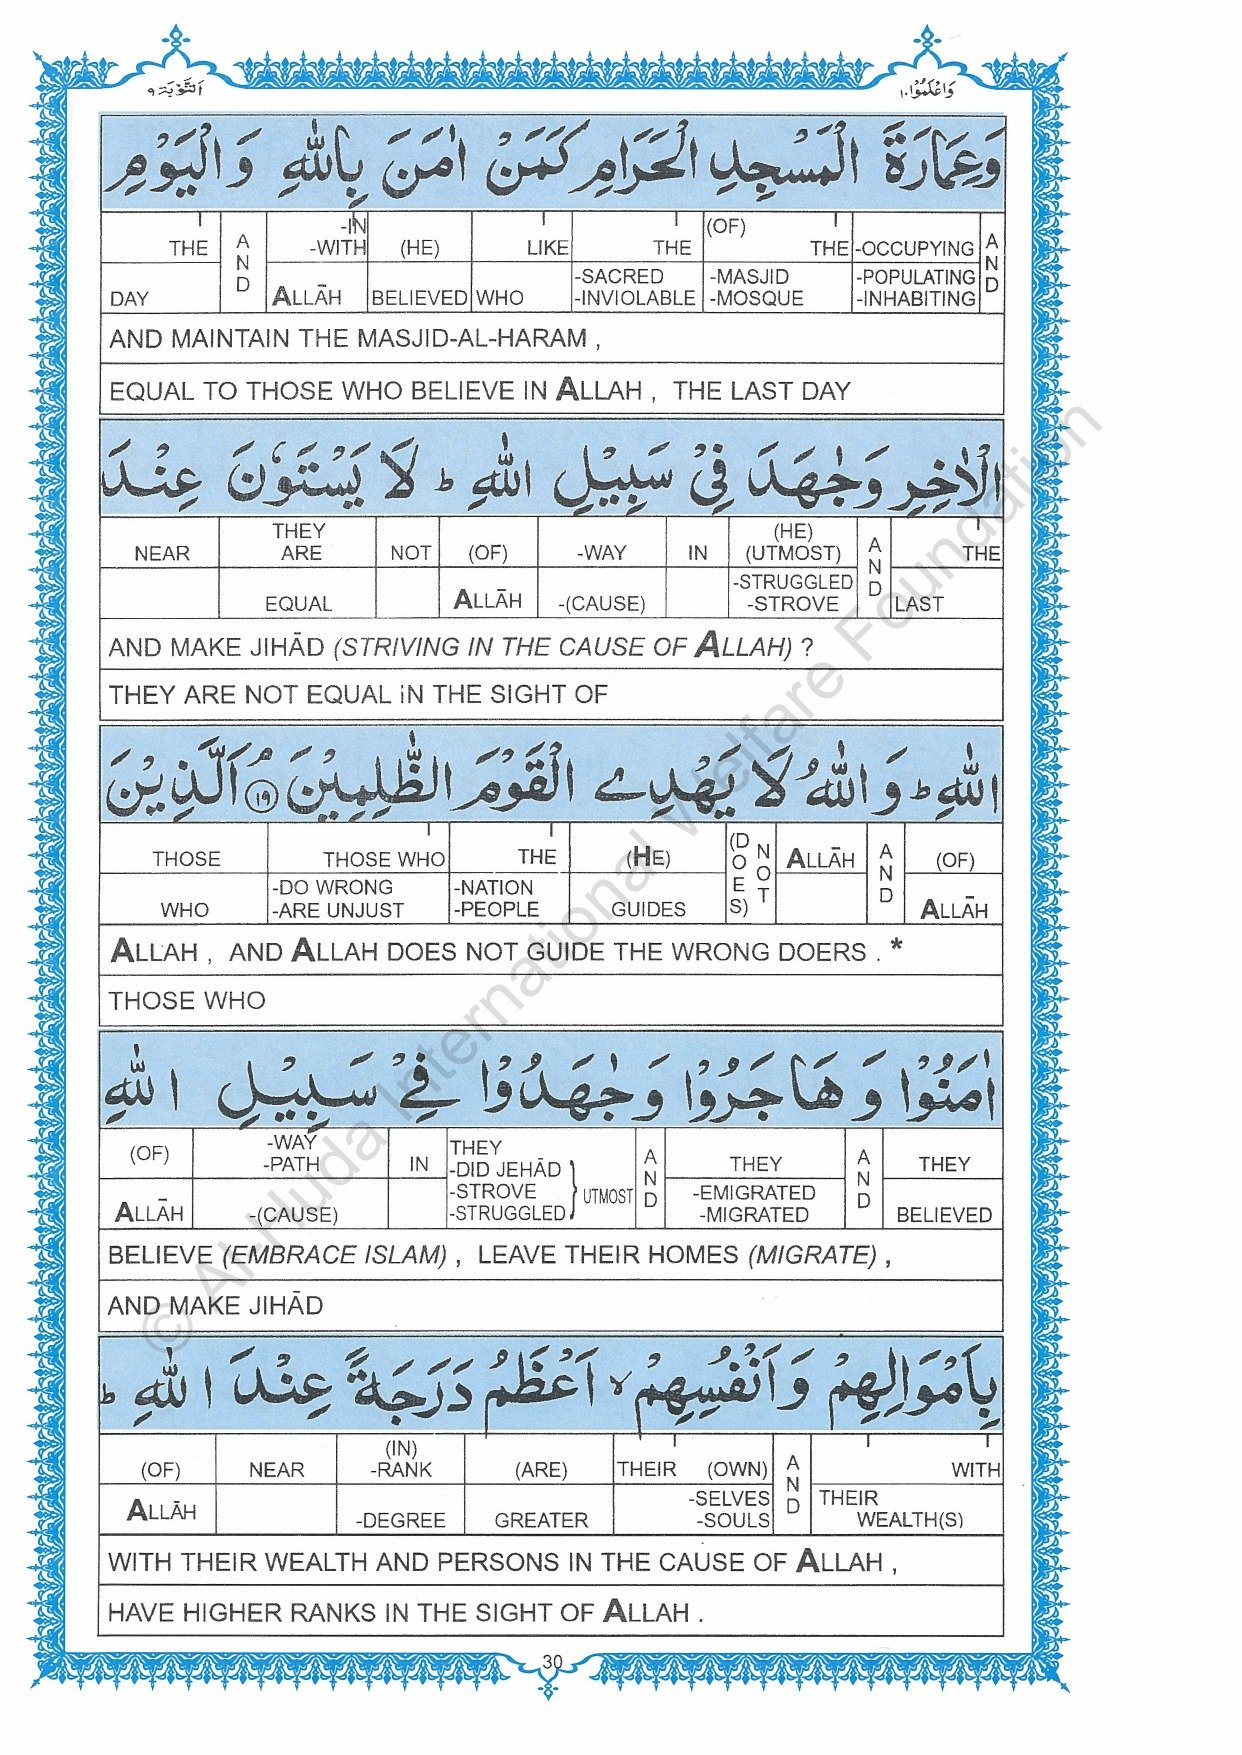 اَلتَّوْبَة ٩
وَاعْلَمُوْٓا ١٠
وَعِمَارَةَ الْمَسْجِدِ الْحَرَامِ كَمَنْ اٰمَنَ بِاللّٰهِ وَالْيَوْمِ
THE AND -IN -WITH (HE) LIKE THE (OF) THE -OCCUPYING AND
DAY ALLĀH BELIEVED WHO -SACRED -INVIOLABLE -MASJID -MOSQUE -POPULATING -INHABITING
AND MAINTAIN THE MASJID-AL-HARAM ,
EQUAL TO THOSE WHO BELIEVE IN ALLAH , THE LAST DAY
الْاٰخِرِ وَجٰهَدَ فِيْ سَبِيْلِ اللّٰهِ ؕ لَا يَسْتَوٗنَ عِنْدَ
NEAR THEY ARE NOT (OF) -WAY IN (HE) (UTMOST) AND THE
EQUAL ALLĀH -(CAUSE) -STRUGGLED -STROVE LAST
AND MAKE JIHĀD (STRIVING IN THE CAUSE OF ALLAH) ?
THEY ARE NOT EQUAL iN THE SIGHT OF
اللّٰهِ ؕ وَاللّٰهُ لَا يَهْدِے الْقَوْمَ الظّٰلِمِيْنَ ۘ ١٩ اَلَّذِيْنَ
THOSE THOSE WHO THE (HE) (DOES) NOT ALLĀH AND (OF)
WHO -DO WRONG -ARE UNJUST -NATION -PEOPLE GUIDES ALLĀH
ALLAH , AND ALLAH DOES NOT GUIDE THE WRONG DOERS . *
THOSE WHO
اٰمَنُوْا وَهَاجَرُوْا وَجٰهَدُوْا فِيْ سَبِيْلِ اللّٰهِ
(OF) -WAY -PATH IN THEY -DID JEHĀD AND THEY AND THEY
ALLĀH -(CAUSE) -STROVE -STRUGGLED } UTMOST -EMIGRATED -MIGRATED BELIEVED
BELIEVE (EMBRACE ISLAM) , LEAVE THEIR HOMES (MIGRATE) ,
AND MAKE JIHĀD
بِاَمْوَالِهِمْ وَاَنْفُسِهِمْ ۙ اَعْظَمُ دَرَجَةً عِنْدَ اللّٰهِ ؕ
(OF) NEAR (IN) -RANK (ARE) THEIR (OWN) AND WITH
ALLĀH -DEGREE GREATER -SELVES -SOULS THEIR WEALTH(S)
WITH THEIR WEALTH AND PERSONS IN THE CAUSE OF ALLAH ,
HAVE HIGHER RANKS IN THE SIGHT OF ALLAH .
30
© Al-Huda International Welfare Foundation